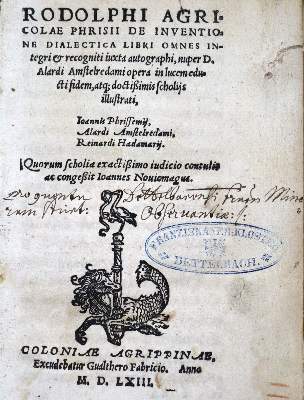 RODOLPHI AGRI-
COLAE PHRISII DE INVENTIO
NE DIALECTICA LIBRI OMNES IN-
tegri & recogniti iuxta autographi, nuper D.
Alardi Amstelredami opera in lucem edu-
cti fidem, atq; doctißimis scholijs
illustrati,
Ioannis Phrissemij,
Alardi Amstelredami,
Reinardi Hadamarij.
Quorum scholia exactißimo iudicio contulit
ac congeßit Ioannes Nouiomagus.
Observantiæ
FRANZISKANER-KLOSTER
DETTELBACH
COLONIAE AGRIPPINAE,
Excudebatur Gualthero Fabricio. Anno
M. D. LXIII.